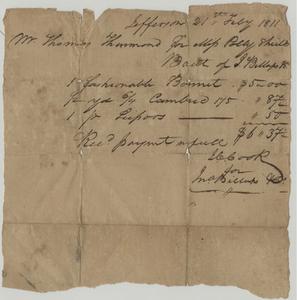 Jefferson 21st Feby 1811
Mr Thomas Thurmond for Miss Polly
Bact of J Billups &
1 fashionable Bonnet $5 00
½ yd 6/4 Cambrick 175 " 87½
1 pr " 50
$6 " 37½
Recd payment in full
Cook
for
Jno Billups & Co